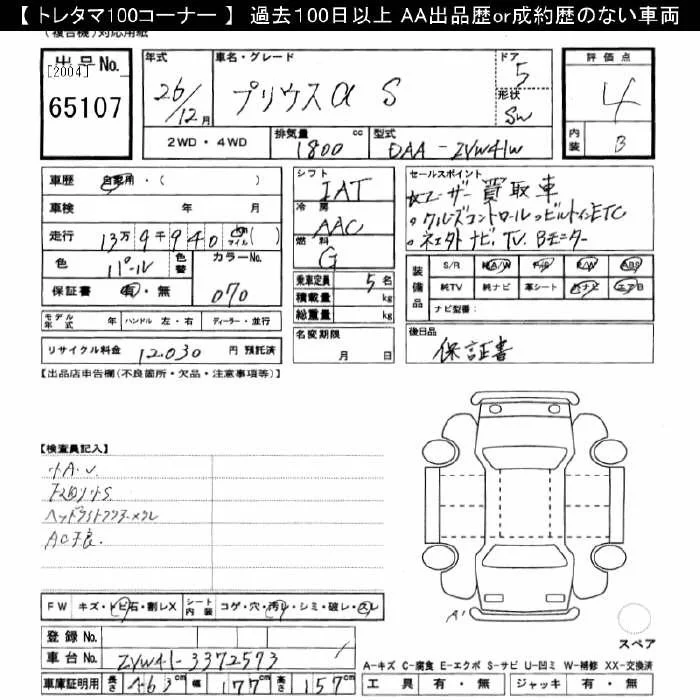 【 トレタマ100コーナー 】 過去100日以上 AA出品歴or成約歴のない車両
(複合機)対応用紙
出品No.
[2004]
65107
年式
26/12月
車名・グレード
プリウスα S
ドア
5
形状
SW
評価点
4
内装
B
2WD・4WD
排気量
1800 cc
型式
DAA-ZVW41W
車歴 自家用・( )
車検 年 月
走行 13万9千940 km マイル ( )
色 パール 色替 カラーNo. 070
保証書 有・無
モデル年式 年 ハンドル 左・右 ディーラー・並行
リサイクル料金 12,030 円 預託済
シフト
IAT
冷房
AAC
燃料
G
乗車定員 5 名
積載量 kg
総重量 kg
名変期限
月 日
セールスポイント
☆ユーザー買取車
○クルーズコントロール○ビルトインETC
○ナビ.TV.Bモニター
装備品 S/R 純A/W P/S P/W ABS
純TV 純ナビ 革シート 社ナビ エアB
ナビ型番:
後日品
保証書
【出品店申告欄(不良箇所・欠品・注意事項等)】
【検査員記入】
小A.U
下回り小S
ヘッドライト
AC不良.
FW キズ・トビ石・割レX シート内装 コゲ・穴・汚レ・シミ・破レ・スレ
登録No.
車台No. ZVW41-3372573
車庫証明用 長さ 463 cm 幅 177 cm 高さ 157 cm
A'
スペア
A-キズ C-腐食 E-エクボ S-サビ U-凹ミ W-補修 XX-交換済
工具 有・無 ジャッキ 有・無